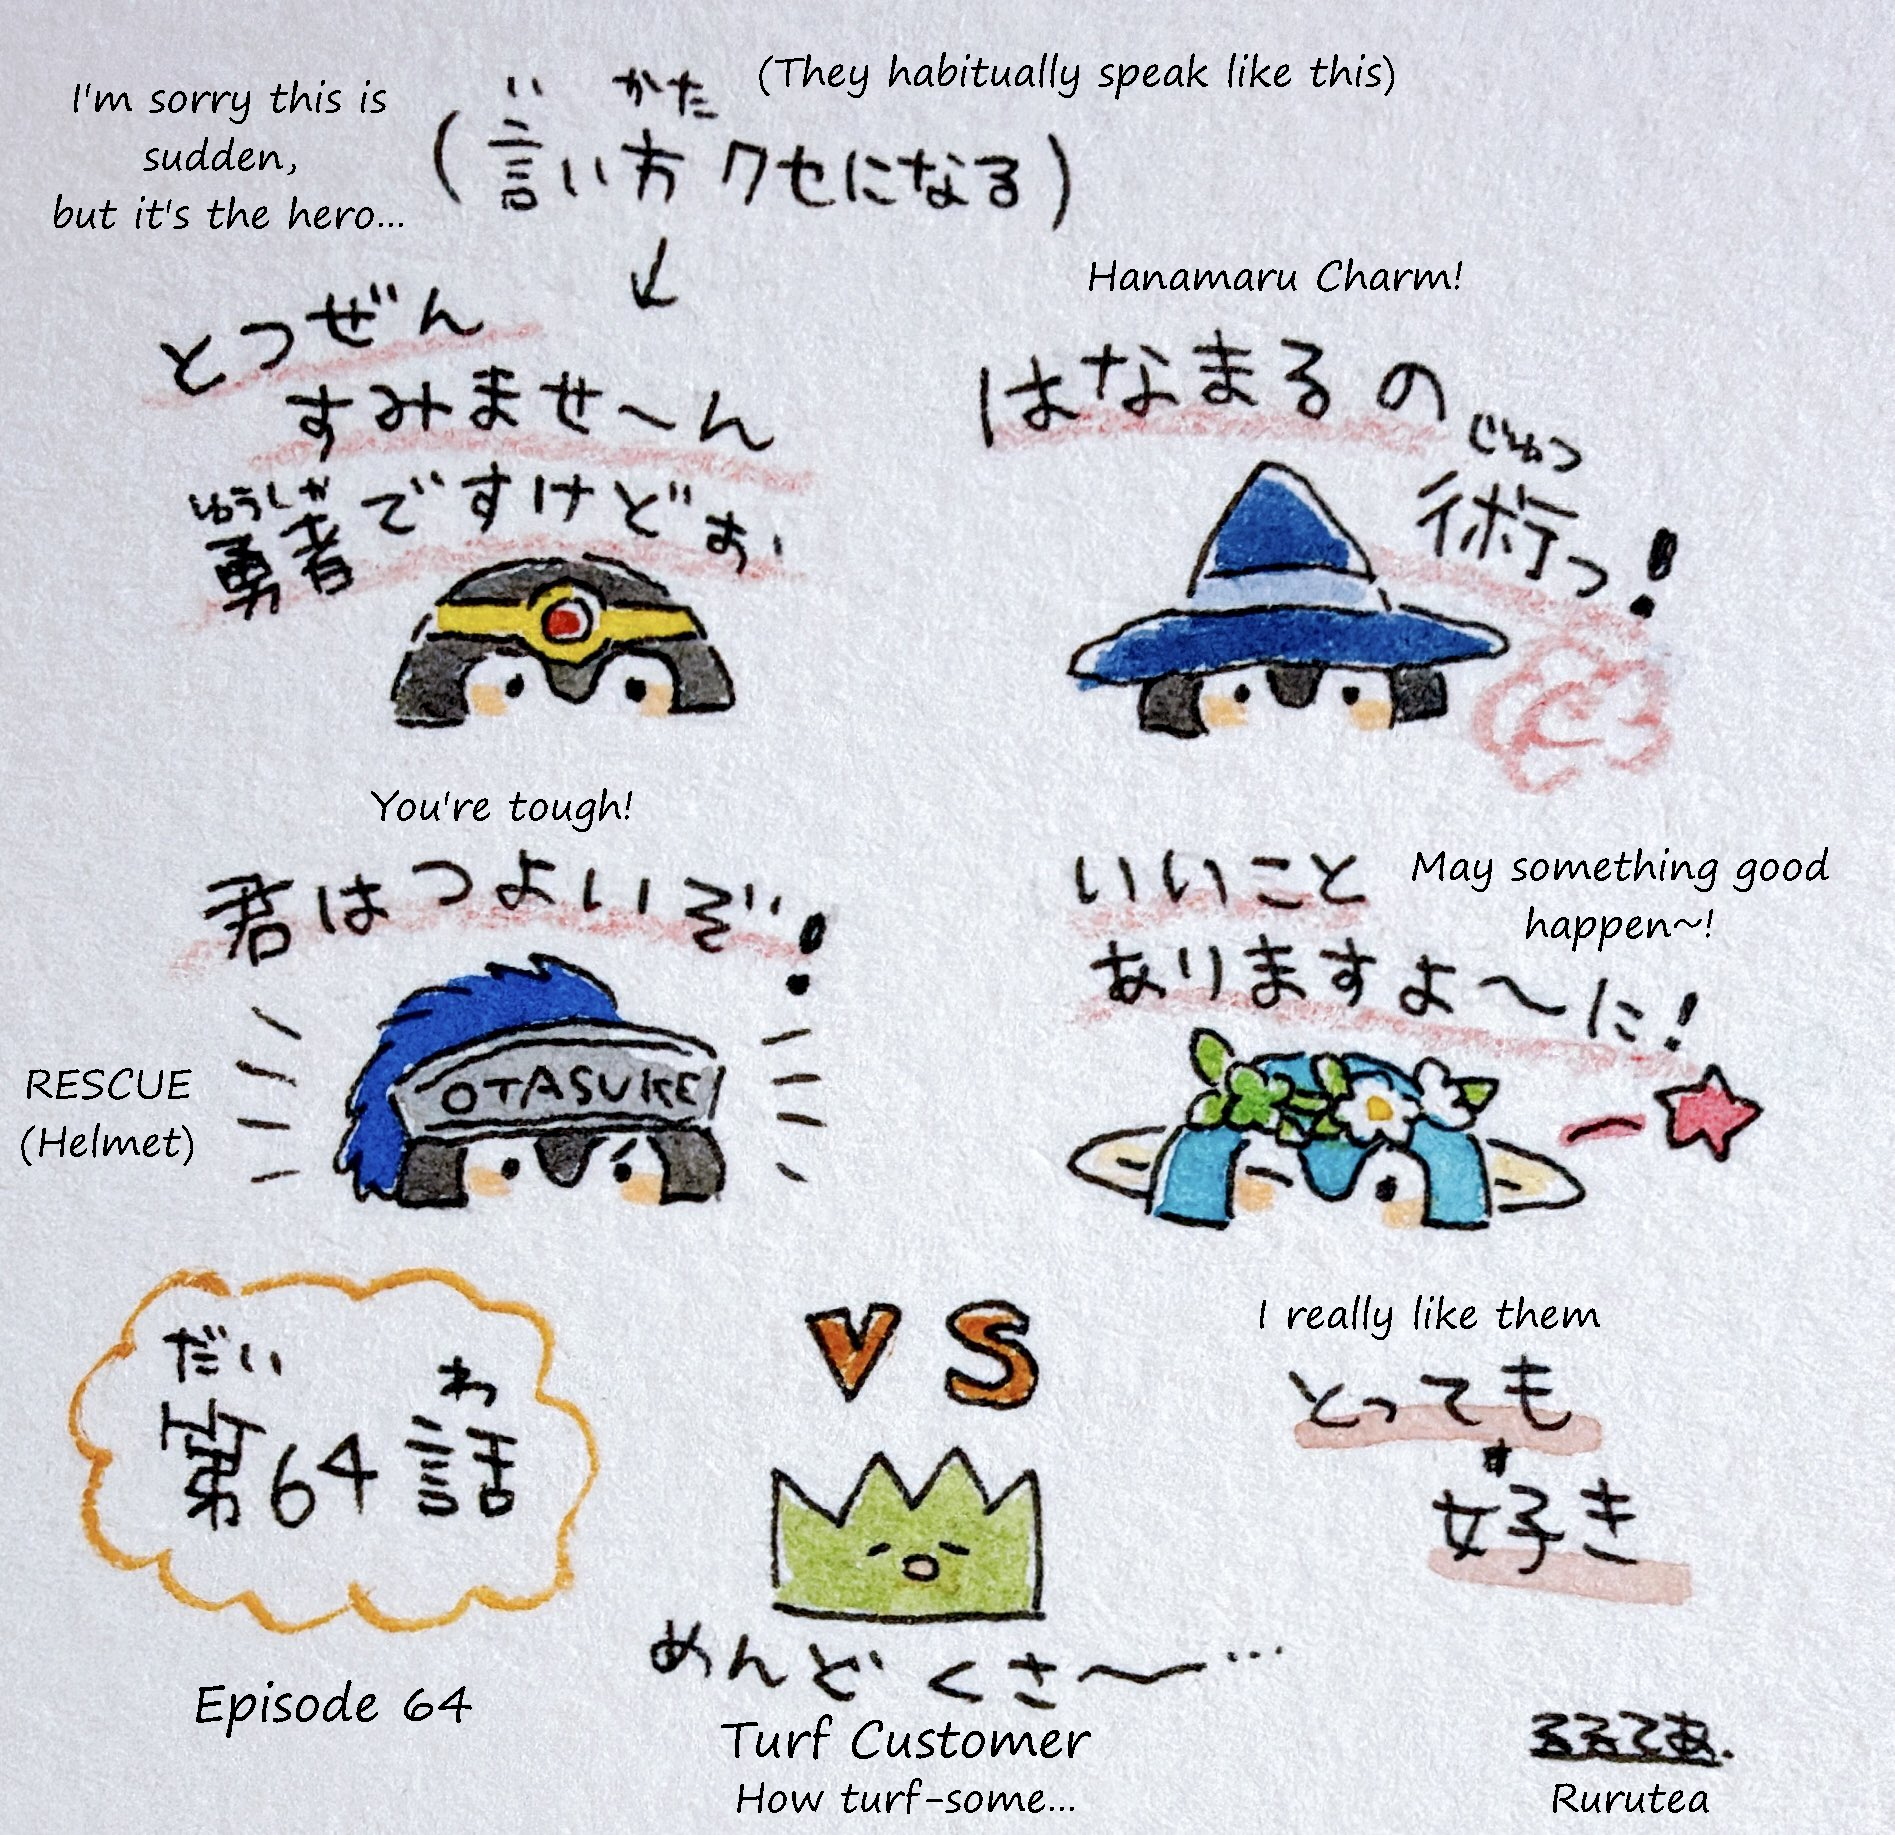 I'm sorry this is
sudden,
but it's the hero...
(They habitually speak like this)
いかた
(言い方クセになる)
とつぜん
すみませ〜ん
ゆうしゃ
勇者ですけどぉ
Hanamaru Charm!
はなまるの
じゅつ
術っ!
You're tough!
君はつよいぞ!
RESCUE
(Helmet)
OTASUKE
いいこと
ありますよ〜に!
May something good
happen~!
だい わ
第64話
Episode 64
VS
めんどくさ〜…
Turf Customer
How turf-some...
I really like them
とっても
す
好き
るるてあ.
Rurutea